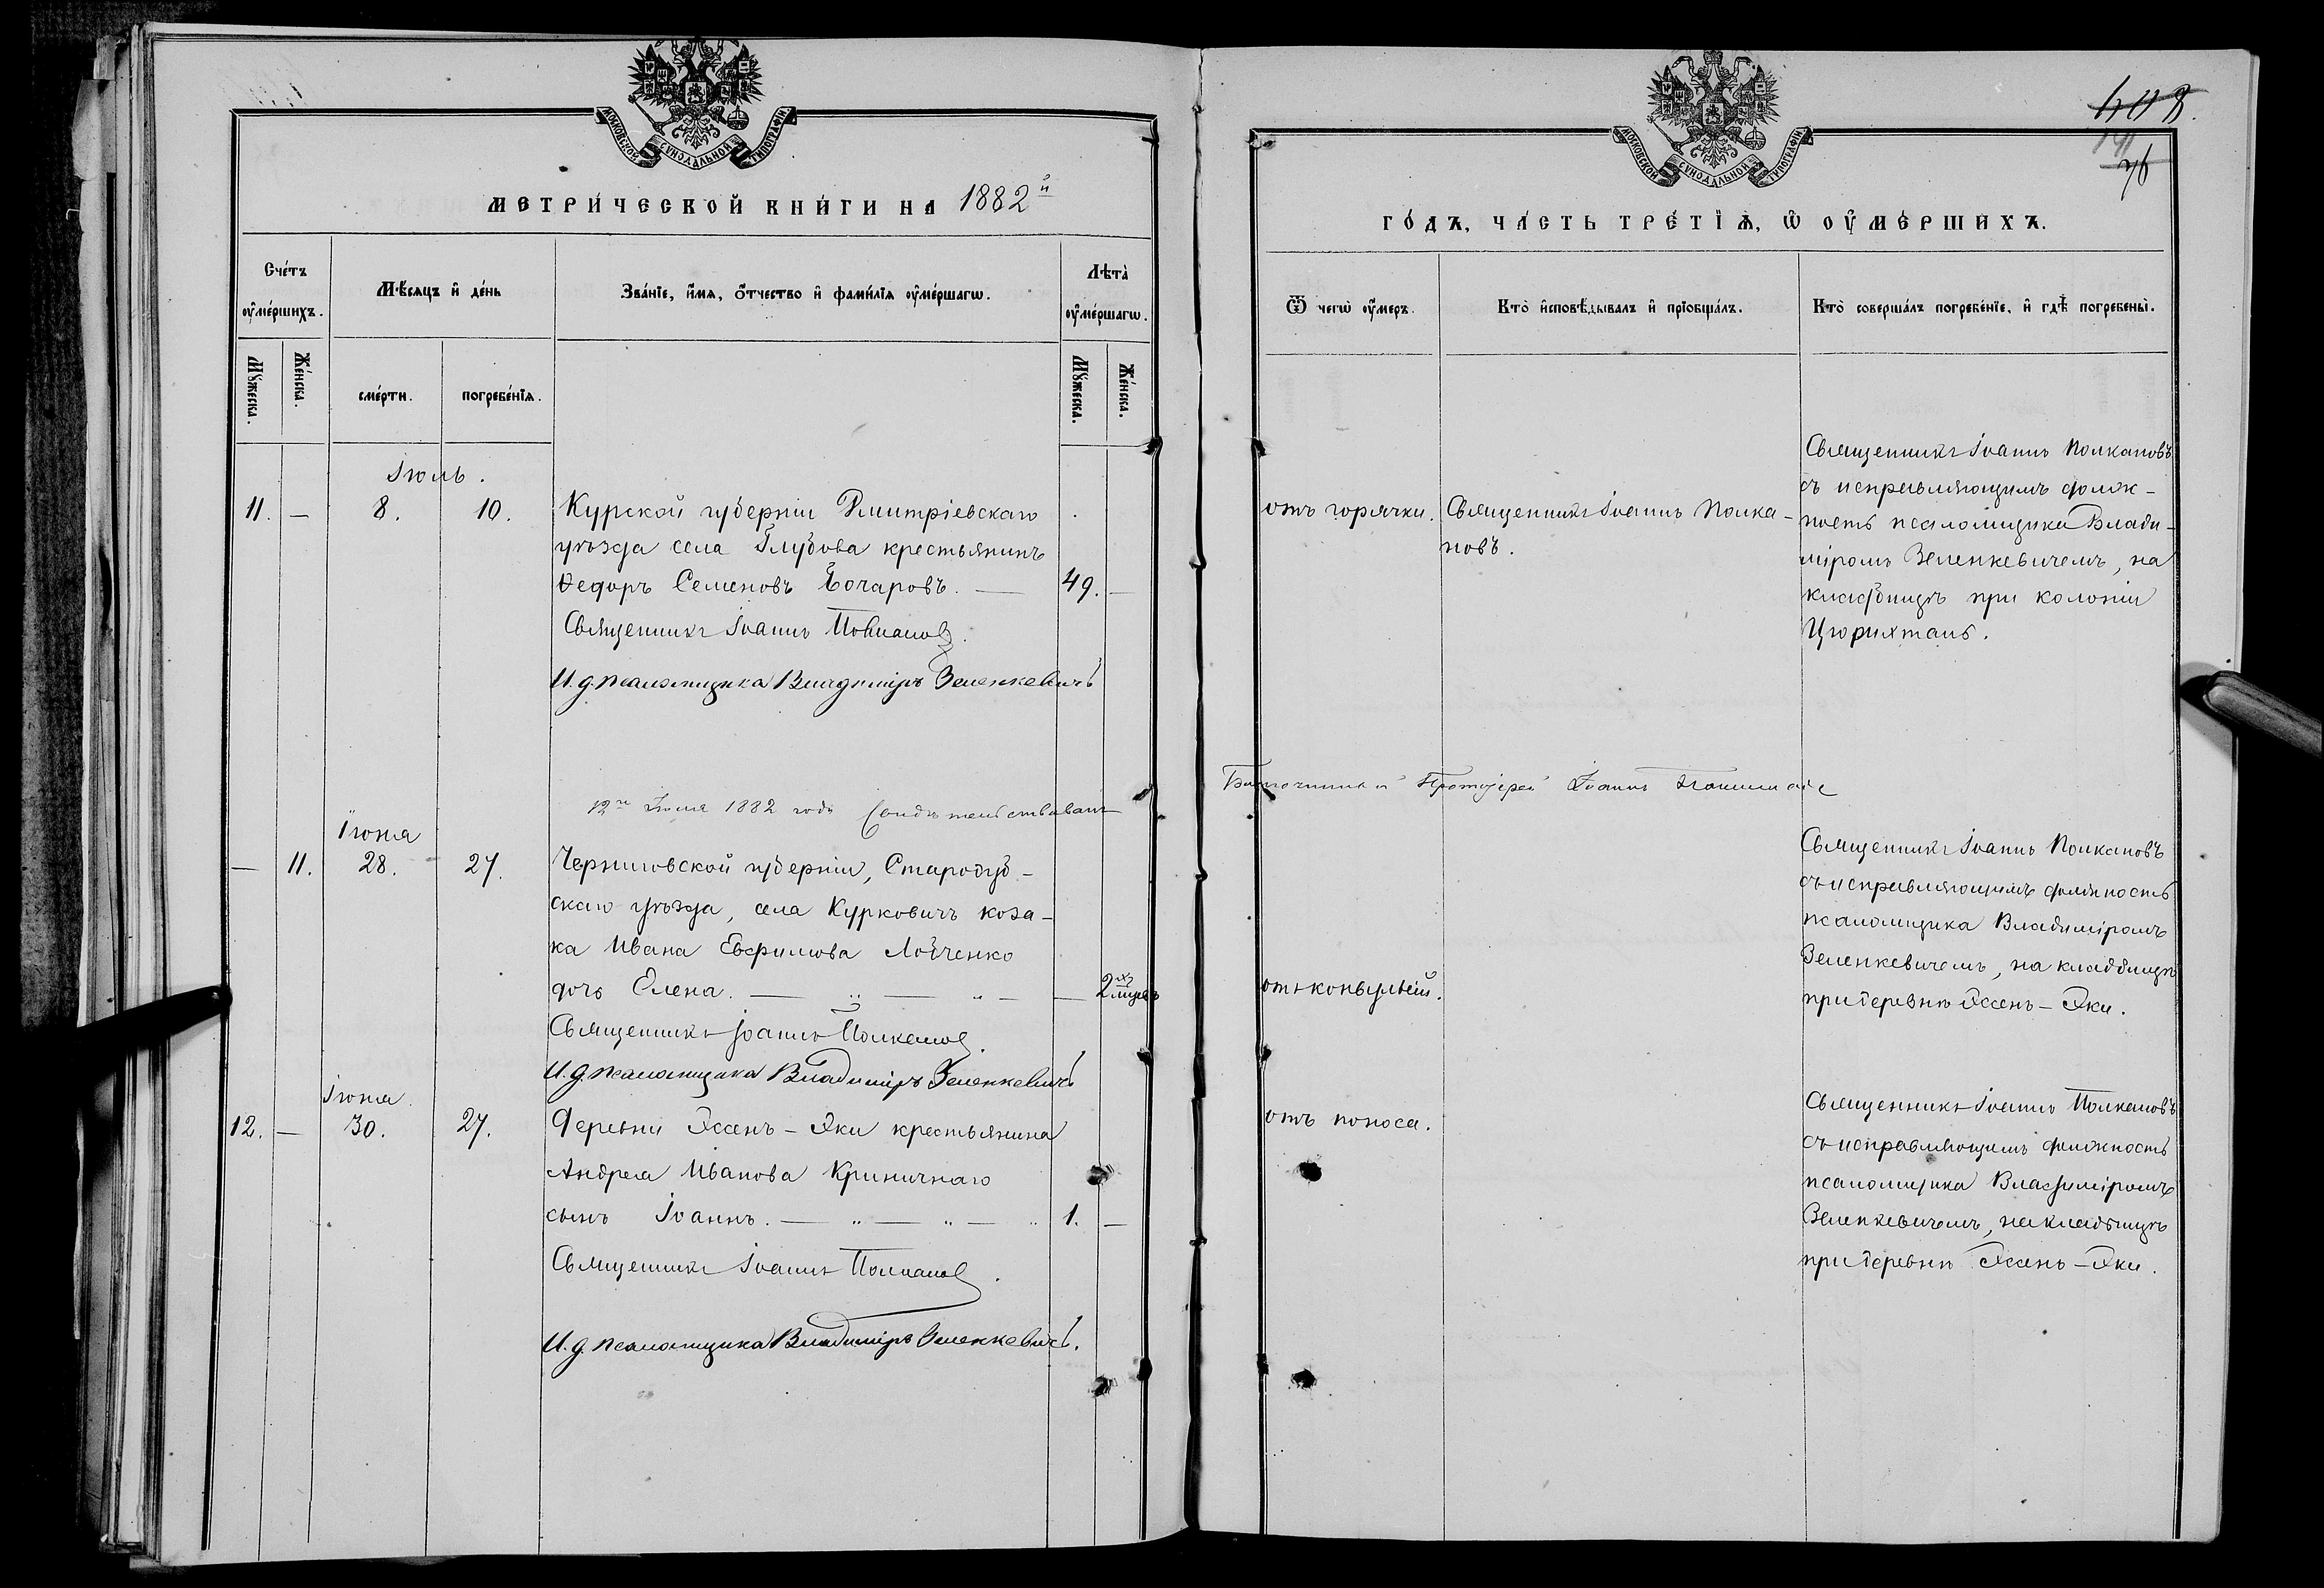 МОСКОВСКОЙ СѴНОДАЛЬНОЙ ТИПОГРАФІИ
МЕТРИ́ЧЕСКОЙ КНИ́ГИ НА 1882й
Сче́тъ ᲂу҆ме́ршихъ.
Мѣ́сяцъ и҆ де́нь
Зва́нїе, и҆́мя, ѻ҆́тчество и҆ фамѝлїя ᲂу҆ме́ршагѡ.
Лѣта̀ ᲂу҆ме́ршагѡ.
Мꙋ́жеска.
Же́нска.
сме́рти.
погребе́нїѧ.
Мꙋ́жеска.
Же́нска.
Іюль.
11. — 8. 10. Курской губерніи Дмитріевскаго
уѣзда села Глубова крестьянинъ
Ѳедоръ Семеновъ Бочаровъ. — 49. —
Священникъ Іоаннъ Полкановъ.
И. д. псаломщика Владиміръ Зеленкевичъ
12го Іюля 1882 года Свидѣтельствовалъ
Іюня
— 11. 28. 27. Черниговской губерніи, Стародуб-
скаго уѣзда, села Курковичъ коза-
ка Ивана Евфимова Лойченко
дочь Елена. — „ — „ — — 2хъ мѣсяц
Священникъ Іоаннъ Полкановъ.
И. д. псаломщика Владиміръ Зеленкевичъ
Іюня
12. — 30. 27. Деревни Эсенъ-Эки крестьянина
Андрея Иванова Криничнаго
сынъ Іоаннъ. — „ — „ — „ 1. —
Священникъ Іоаннъ Полкановъ.
И. д. псаломщика Владиміръ Зеленкевичъ.
МОСКОВСКОЙ СѴНОДАЛЬНОЙ ТИПОГРАФІИ
408.
76
ГО́ДЪ, ЧА́СТЬ ТРЕ́ТЇѦ, Ѡ҆ ОУ҆МЕ́РШИХЪ.
Ѿ чегѡ̀ ᲂу҆́меръ.
Кто̀ и҆сповѣ́дывалъ и҆ прїобща́лъ.
Кто̀ соверша́лъ погребе́нїе, и҆ гдѣ̀ погребены̀.
отъ горячки.
Священникъ Іоаннъ Полка-
новъ.
Священникъ Іоаннъ Полкановъ
съ исправляющимъ долж-
ность псаломщика Влади-
міромъ Зеленкевичемъ, на
кладбищѣ при колоніи
Цюрихталь.
Благочинный Протоіерей Іоаннъ
отъ конвульсій.
Священникъ Іоаннъ Полкановъ
съ исправляющимъ должность
псаломщика Владиміромъ
Зеленкевичемъ, на кладбищѣ
при деревнѣ Эсенъ-Эки.
отъ поноса.
Священникъ Іоаннъ Полкановъ
съ исправляющимъ должность
псаломщика Владиміромъ
Зеленкевичемъ, на кладбищѣ
при деревнѣ Эсенъ-Эки.